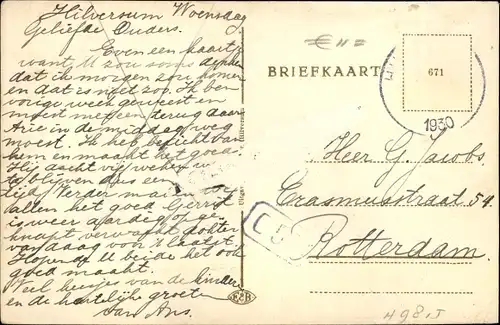 Hilversum Woensdag
Geliefde Ouders.
Even een kaartje
want U zou soms denken
dat ik morgen zou komen
en dat is niet zoo. Ik ben
vorige week geweest en
moest meteen terug daar
Arie in de middag weg
moest. Ik heb bericht van
hem en maakt het goed.
Hij dacht vijf weken weg
te blijven dus een
tijd. Verder
allen het goed Gerrit
is weer aardig opge-
knapt, verwacht dokter
vandaag voor 't laatst.
Hopende U beide het ook
goed maakt.
Veel kusjes van de kinderen
en de hartelijke groeten
van Ans.
BRIEFKAART
671
1930
Heer G. Jacobs.
Erasmusstraat 54.
Rotterdam.
C5
Hilversum
Uitgav